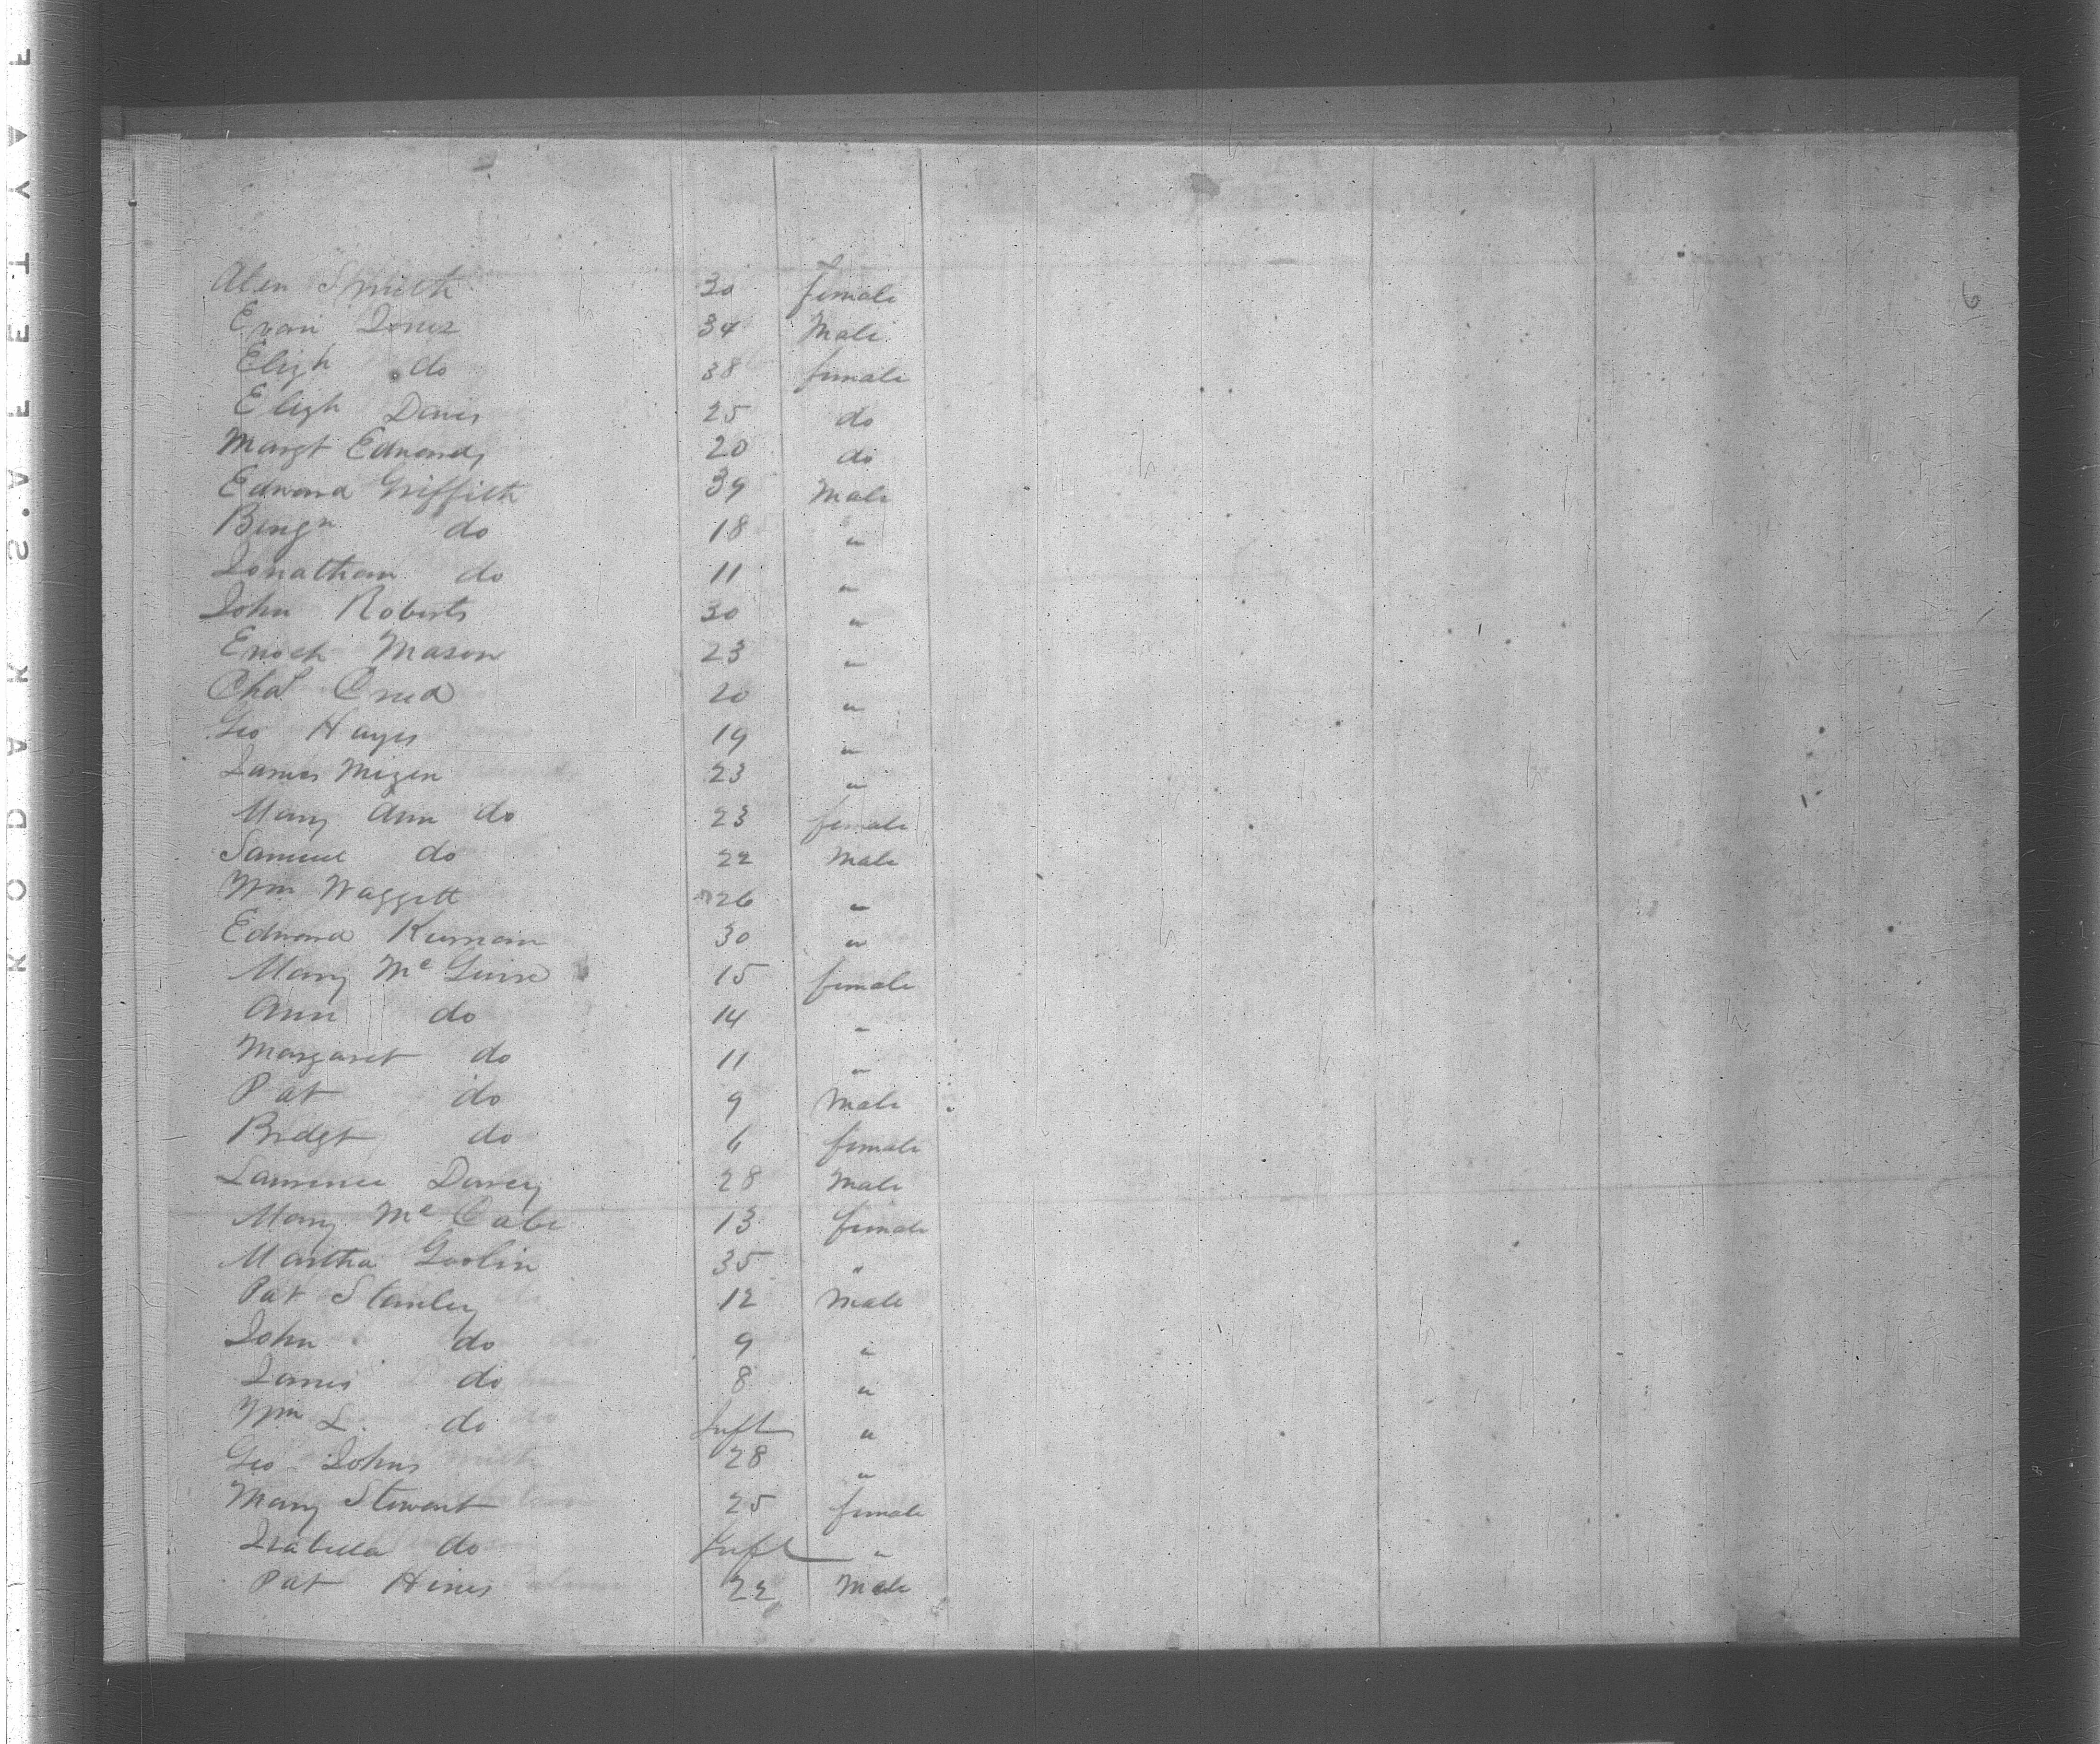 Alen Smith 30 female
Evan Jones 34 Male
Elizh do 38 female
Elizh Davis 25 do
Margt Edwards 20 do
Edward Griffith 39 Male
Benjn do 18 "
Jonathan do 11 "
John Roberts 30 "
Enoch Mason 23 "
Chas 20 "
Geo Hayes 19 "
James Mizen 23 "
Mary Ann do 23 female
Samuel do 22 Male
Wm Waggett 26 "
Edward 30 "
Mary McGuire 15 female
Ann do 14 "
Margaret do 11 "
Pat do 9 Male
Bridgt do 6 female
Lawrence Darcy 28 Male
Mary McCabe 13 female
Martha 35 "
Pat Stanley 12 Male
John do 9 "
James do 8 "
Wm L. do Inft "
Geo Johns 28 "
Mary Stewart 25 female
Isabella do Inft "
Pat Hines 22 Male
6
KODAK SAFETY